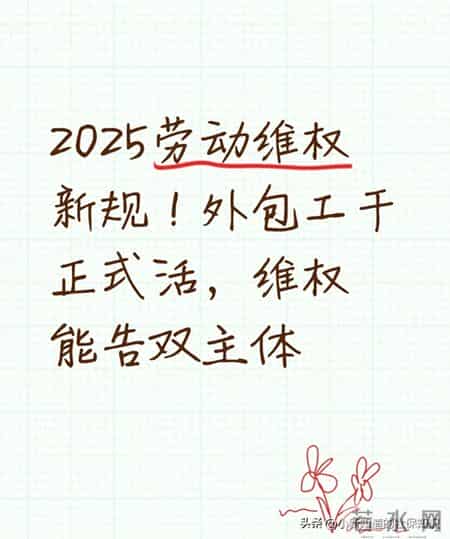 2025劳动维权
新规！外包工干
正式活，维权
能告双主体